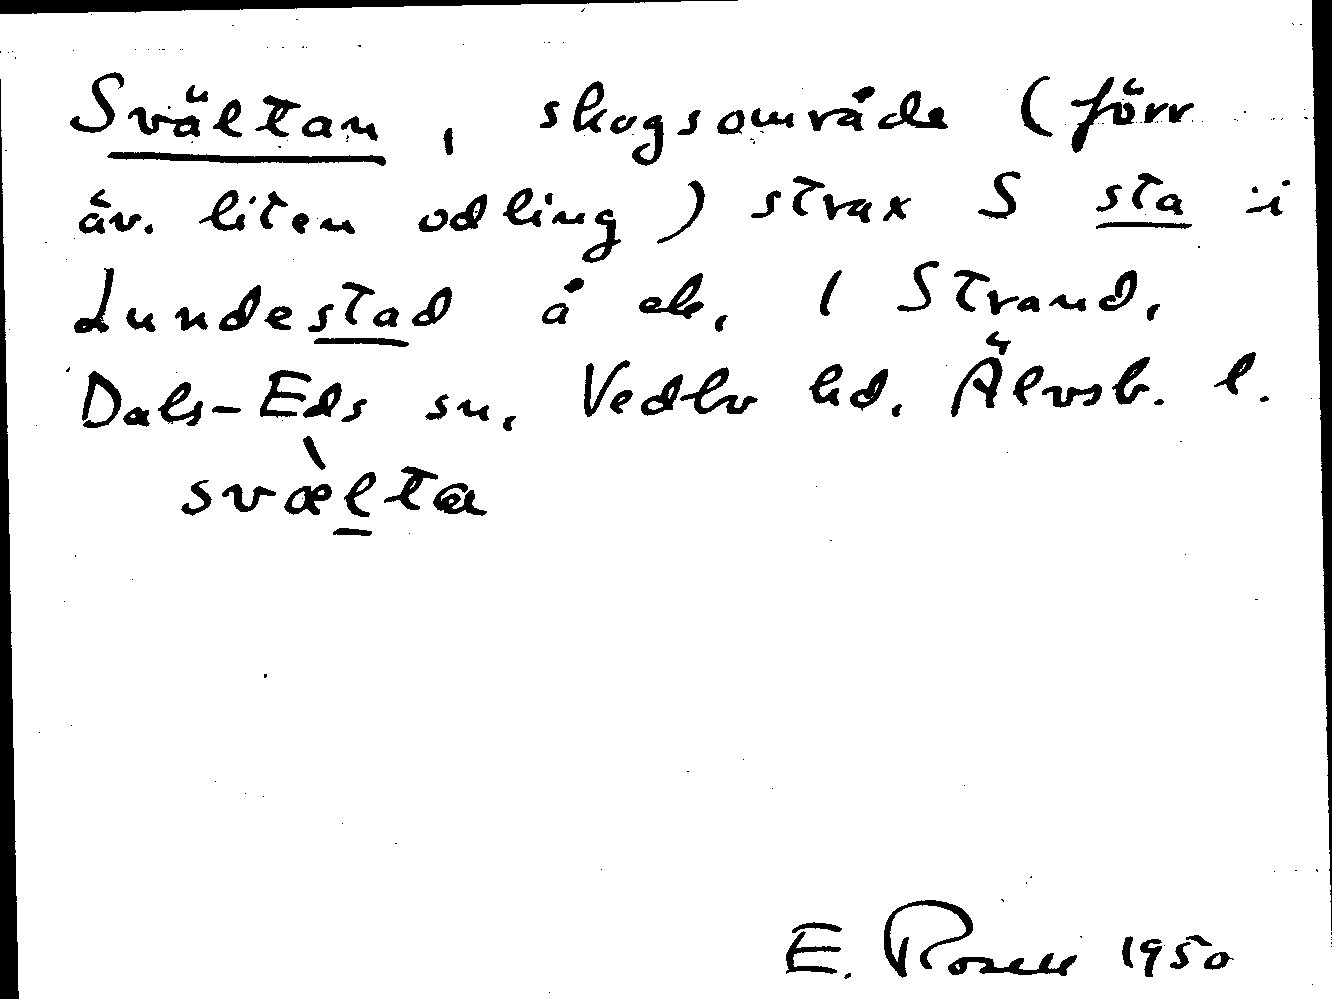 Svältan, skogsområde (förr
äv. liten odling) strax S sta i
Lundestad å ek. ( Strand,
Dals-Eds sn, Vedbo hd. Älvsb. l.
svæ̀lta
E. Rosell 1950